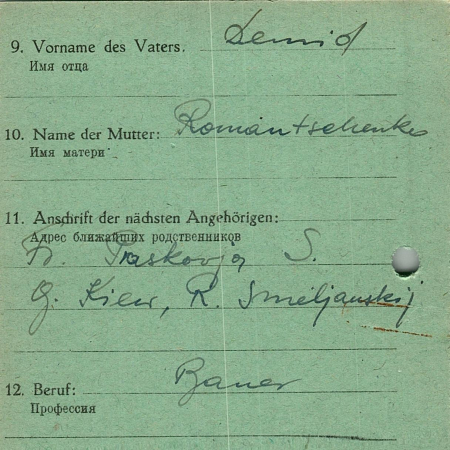 9. Vorname des Vaters: Demid
Имя отца
10. Name der Mutter: Romantschenko
Имя матери
11. Anschrift der nächsten Angehörigen:
Адрес ближайших родственников
Fr. Praskovja S.
G. Kiew, R. Smiljanskij
12. Beruf: Bauer
Профессия